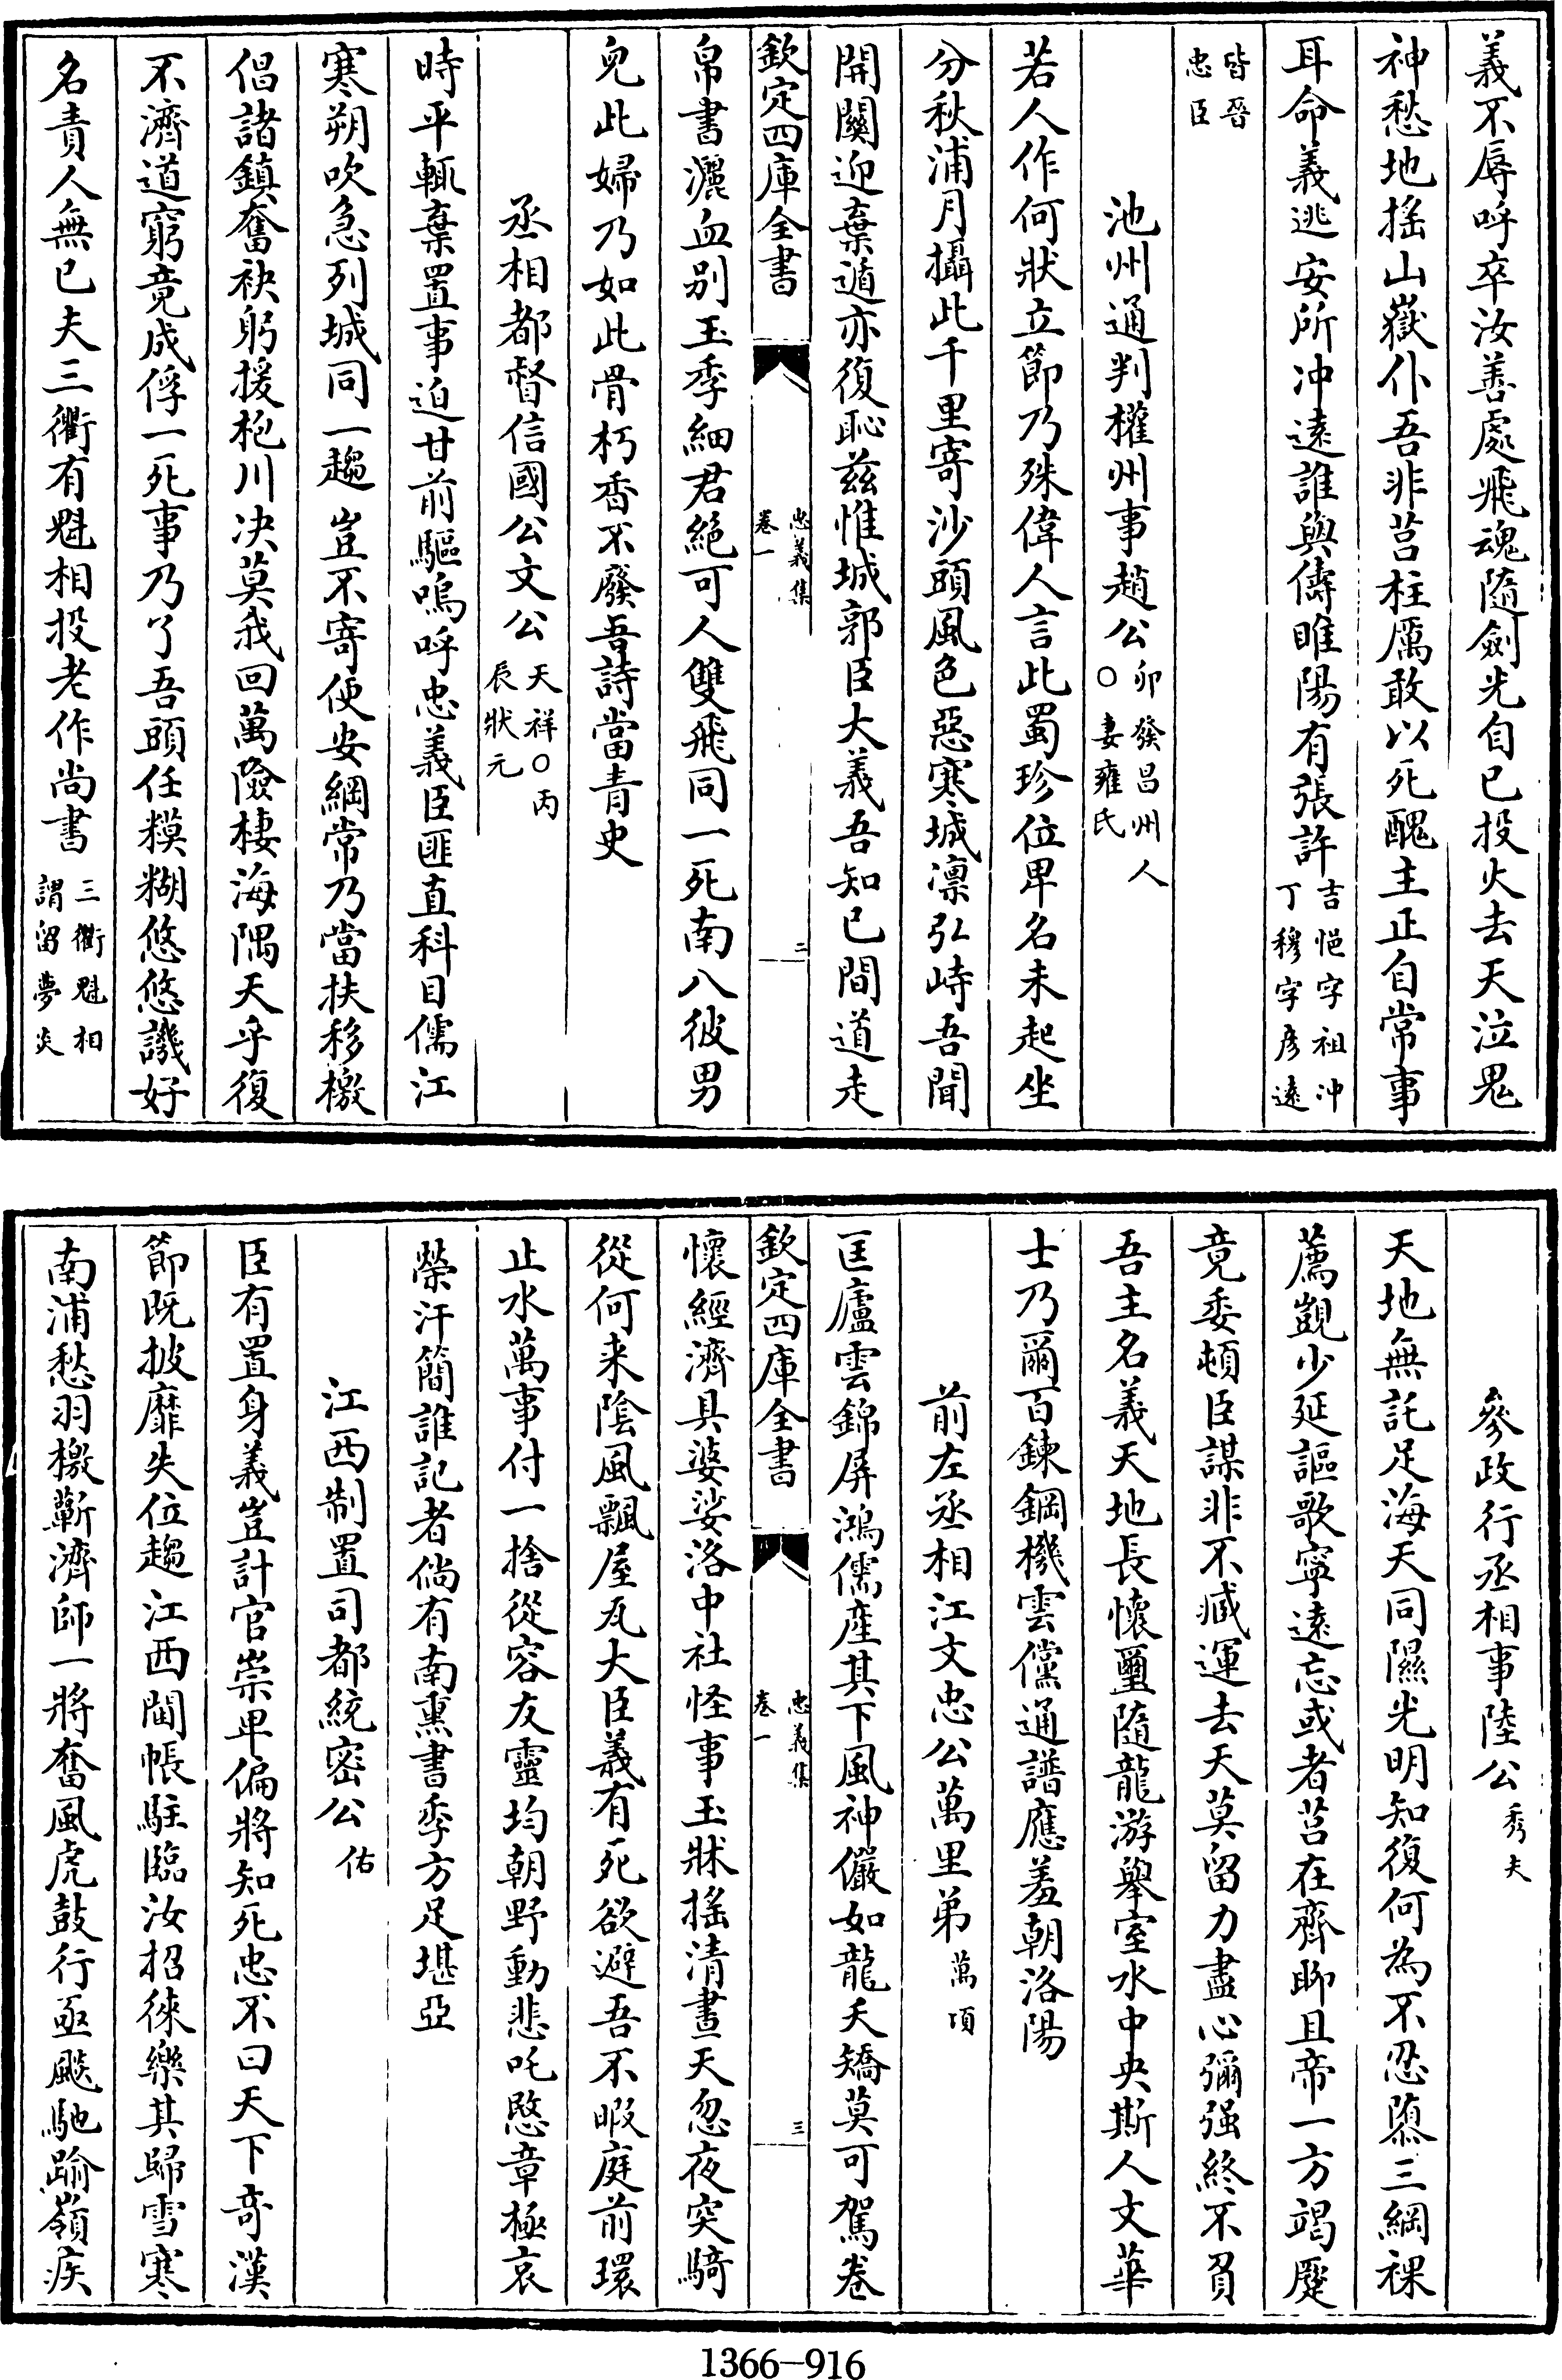 義不辱呼卒汝善處飛魂隨劍光自已投火去天泣鬼
神愁地揺山嶽仆吾非莒柱厲敢以死醜主正自常事
耳命義逃安所冲遠誰與儔睢陽有張許吉悒字祖冲丁穆字彦遠
皆晉忠臣
池州通判權州事趙公卯發昌州人○妻雍氏
若人作何狀立節乃殊偉人言此蜀珍位卑名未起坐
分秋浦月攝此千里寄沙頭風色惡寒城凛弘峙吾聞
開關迎棄遁亦復恥兹惟城郭臣大義吾知已間道走
欽定四庫全書
忠義集
卷一
二
帛書灑血别玉季細君絶可人雙飛同一死南八彼男
兒此婦乃如此骨朽香不廢吾詩當青史
丞相都督信國公文公天祥○丙辰狀元
時平輒棄置事迫甘前驅嗚呼忠義臣匪直科目儒江
寒朔吹急列城同一趨豈不寄便安綱常乃當扶移檄
倡諸鎮奮袂躬援枹川决莫我回萬險棲海隅天乎復
不濟道窮竟成俘一死事乃了吾頭任糢糊悠悠譏好
名責人無已夫三衢有魁相投老作尚書三衢魁相謂留夢炎
參政行丞相事陸公秀夫
天地無託足海天同隰光明知復何為不忍隳三綱裸
薦覬少延謳歌寧遠忘或者莒在齊聊且帝一方竭蹷
竟委頓臣謀非不臧運去天莫留力盡心彌强終不負
吾主名義天地長懷璽隨龍游舉室水中央斯人文華
士乃爾百鍊鋼機雲儻通譜應羞朝洛陽
前左丞相江文忠公萬里弟萬頃
匡廬雲錦屏鴻儒產其下風神儼如龍夭矯莫可駕卷
欽定四庫全書
忠義集
卷一
三
懷經濟具婆娑洛中社怪事玉牀揺清晝天忽夜突騎
從何来陰風飄屋瓦大臣義有死欲避吾不暇庭前環
止水萬事付一捨從容友靈均朝野動悲吒愍章極哀
榮汗簡誰記者倘有南熏書季方足堪亞
江西制置司都統密公佑
臣有置身義豈計官崇卑偏將知死忠不曰天下奇漢
節既披靡失位趨江西閫帳駐臨汝招徠樂其歸雪寒
南浦愁羽檄蘄濟師一將奮風虎鼓行亟颷馳踰嶺疾
1366—916